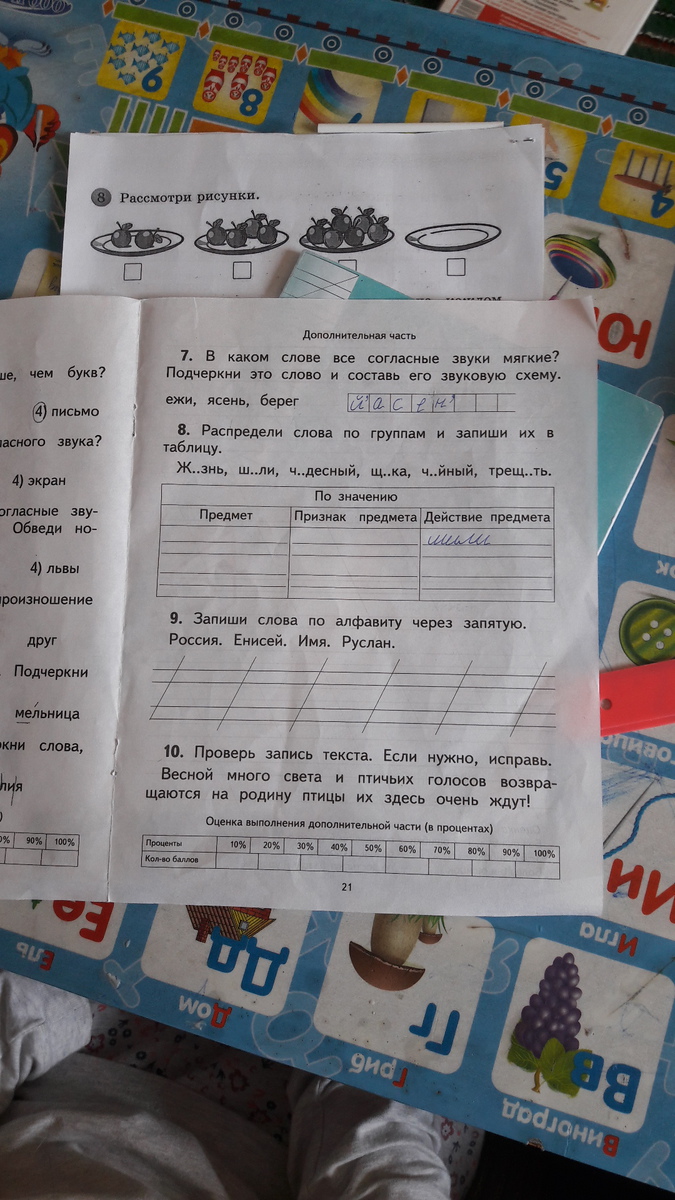 9
8
5
4
Ю
8 Рассмотри рисунки.
Дополнительная часть
7. В каком слове все согласные звуки мягкие?
Подчеркни это слово и составь его звуковую схему.
ежи, ясень, берег
й' а с' е н'
8. Распредели слова по группам и запиши их в
таблицу.
Ж..знь, ш..ли, ч..десный, щ..ка, ч..йный, трещ..ть.
По значению
Предмет Признак предмета Действие предмета
шили
9. Запиши слова по алфавиту через запятую.
Россия. Енисей. Имя. Руслан.
10. Проверь запись текста. Если нужно, исправь.
Весной много света и птичьих голосов возвра-
щаются на родину птицы их здесь очень ждут!
Оценка выполнения дополнительной части (в процентах)
Проценты 10% 20% 30% 40% 50% 60% 70% 80% 90% 100%
Кол-во баллов
21
ше, чем букв?
4) письмо
ласного звука?
4) экран
огласные зву-
Обведи но-
4) львы
произношение
друг
Подчеркни
мельница
ркни слова,
90% 100%
Ии
Игла
Ее
Ель
Дд
Дом
Гг
Гриб
Вв
Виноград